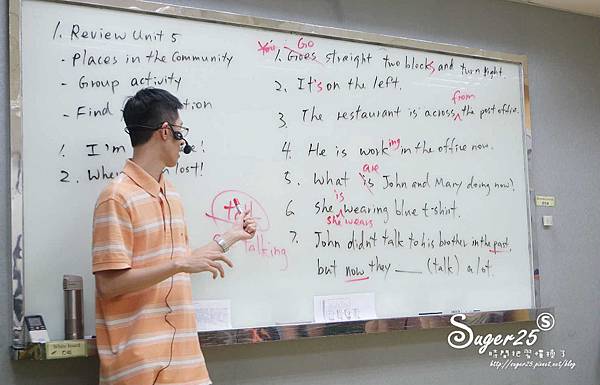 1. Review Unit 5
- Places in the Community
- Group activity
- Find
1. I'm
2. Whe lost!
You Go
1. Goes straight two blocks and turn right.
2. It's on the left.
from
3. The restaurant is across the post office.
4. He is working in the office now.
are
5. What is John and Mary doing now?
is
6. she wearing blue t-shirt.
she wears
7. John didn't talk to his brother in the past,
but now they ___ (talk) a lot.
talking
White board
Suger25 S
時間把習慣換了
http://suger25.pixnet.net/blog